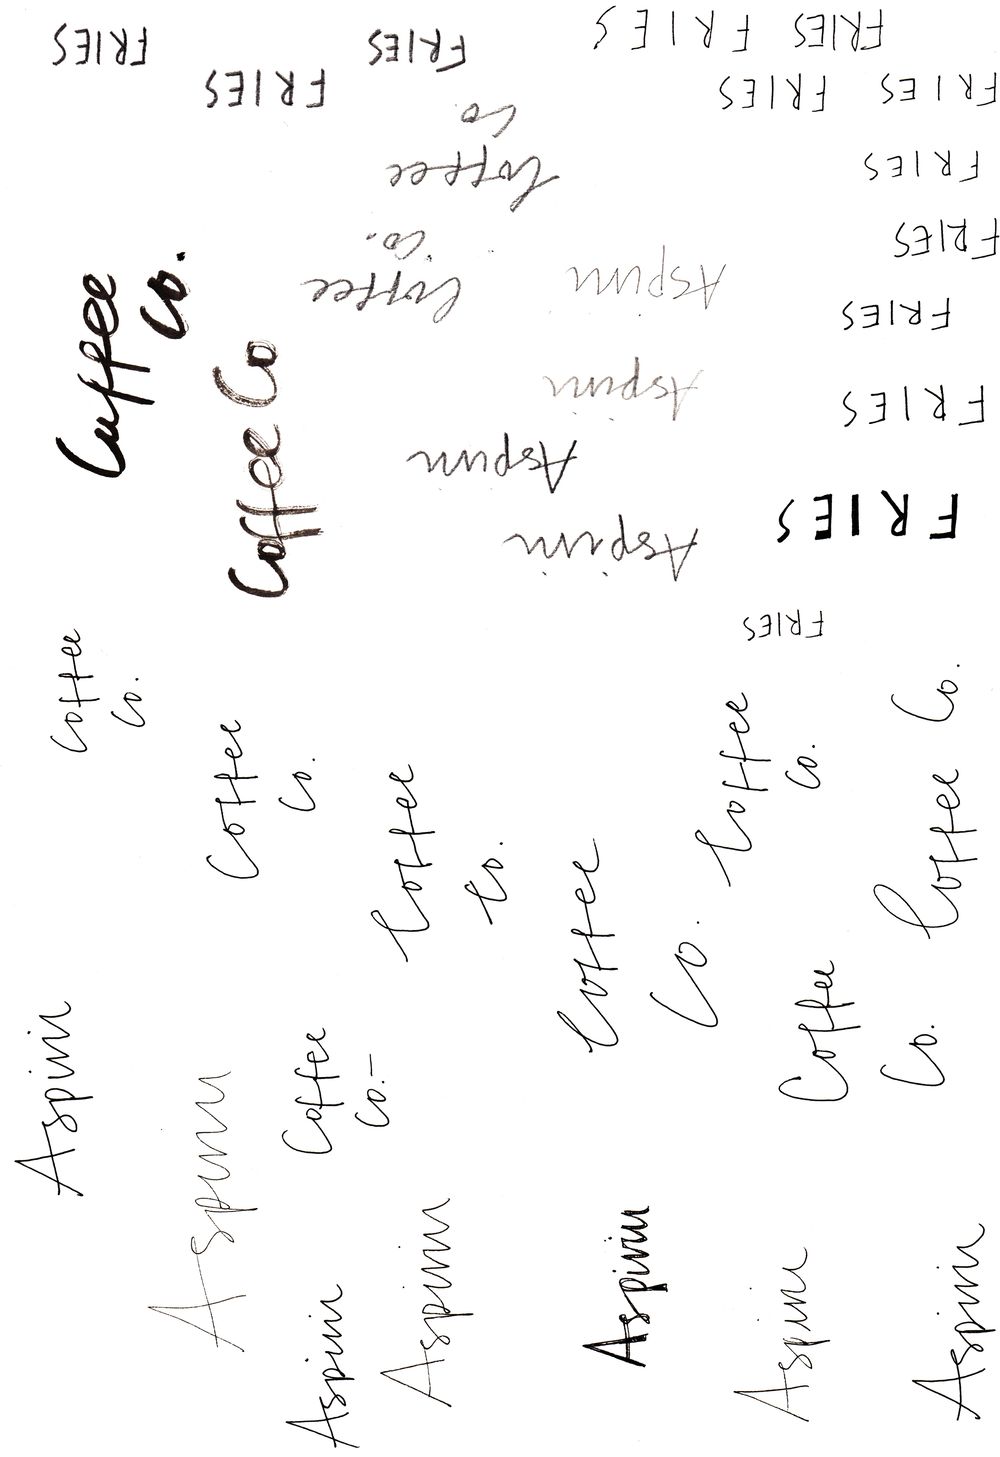 FRIES
FRIES
FRIES
FRIES
FRIES
FRIES
FRIES
FRIES
FRIES
FRIES
FRIES
FRIES
FRIES
Coffee
Co.
Coffee
Co.
Aspirin
Aspirin
Aspirin
Aspirin
Coffee
Co.
Coffee Co
Coffee
Co.
Coffee
Co.
Coffee
Co.
Coffee
Co.
Coffee
Co.
Coffee Co.
Coffee
Co.
Coffee
Co.-
Aspirin
Aspirin
Aspirin
Aspirin
Aspirin
Aspirin
Aspirin